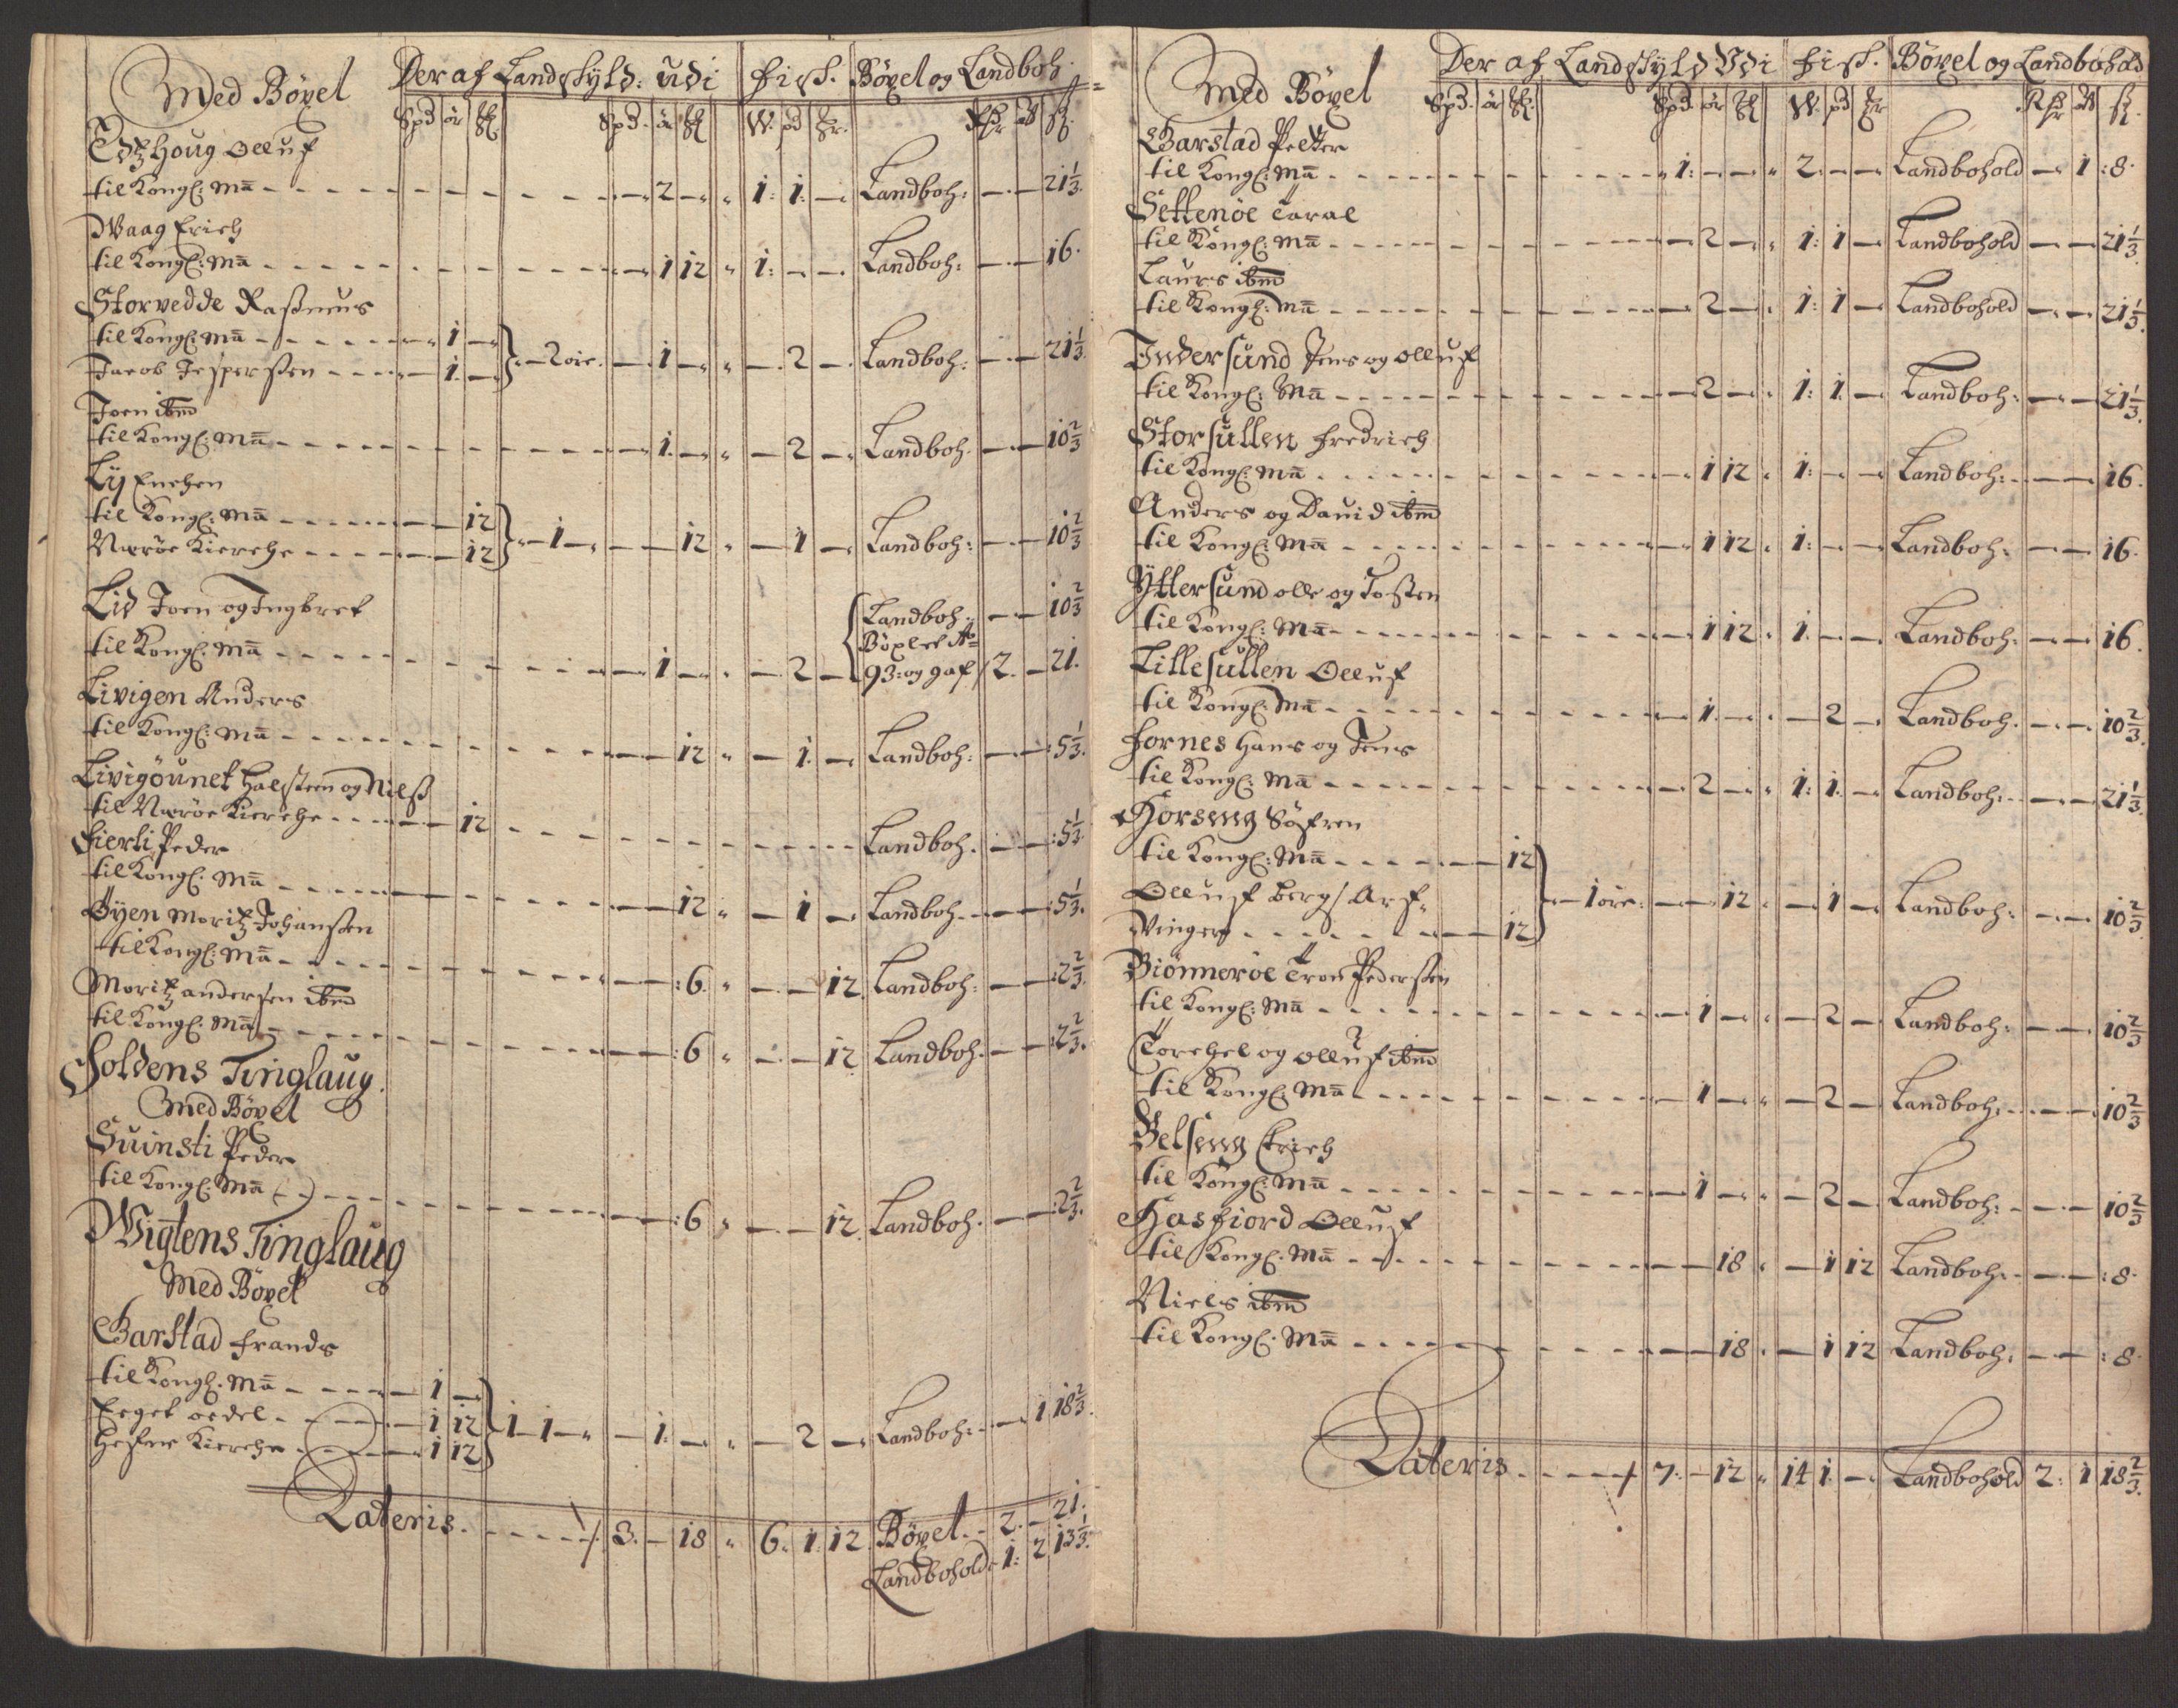 Med Böxel Der af Landskyld: udi fisk. Böxel og Landboh:
Spd ör Spd. ör W. pd Rdr ß
Edtzhoug Olluf
til Kongl: Ma - 2 - 1: 1: - Landboh: - 21 1/3.
Waag Erich
til Kongl: Ma - 1 12 1: - - Landboh: - 16.
Storvedde Rasmus
til Kongl: Ma - 1 -
Jacob Jesperssen - 1. - } - 2 öre. - 1 - - 2 - Landboh: - 21 1/3
Joen ibm
til Kongl: Ma - 1. - - 2 - Landboh. - 10 2/3
Lij Enchen
til Kongl: Ma - 12
Næröe Kierche - 12 } - 1 - - 12 - 1 - Landboh: - 10 2/3
Lid Joen og Ingbret
Landboh: - 10 2/3
Böxlet Ao
til Kongl: Ma - 1 - - 2 - 93: og gaf 2. - 21.
Livigen Anders
til Kongl: Ma - 12 - 1. - Landboh: - 5 1/3.
Livigöunet Halsteen og Nielß
til Næröe Kierche - 12 - Landboh. - :5 1/3.
Fierli Peder
til Kongl. Ma - 12 - 1 - Landboh. - :5 1/3.
Öyen Moritz Johanssen
til Kongl: Ma - :6. - - 12. Landboh: - :2 2/3.
Moritz andersen ibm
til Kongl: Ma - :6 - - 12 Landboh. - :2 2/3.
Foldens Tinglaug.
Med Böxel
Suinsti Peder
til Kongl: Ma (-) - :6 - - 12. Landboh. - :2 2/3.
Wigtens Tinglaug
Med Böxel
Garstad Frands
til Kongl: Ma - 1 -
Eeget oedel - 1 12
Kierche - 1 12 } 1 1 - - 1: - - 2 - Landboh: - 1 18 2/3.
Lateris. - 3. - 18 6. 1: 12 Böxel. - 2. - 21.
Landbohold: 1: 2 13 1/3.
Med Böxel Der af Landskyld Udi fisk. Böxel og Landbohold
Spd. ör Spd. ör W. pd Rdr ß
Garstad Petter
til Kongl: Ma - 1: - - 2. - - Landbohold - 1 :8.
Settenöe Taral
til Kongl: Ma - 2 - 1: 1 - Landbohold - - 21 1/3.
Laurs ibm
til Kongl: Ma - 2 - 1: 1 - Landbohold - - 21 1/3.
Indersund Jens og Olluf
til Kongl: Ma - 2 - 1: 1. - Landboh: - - 21 1/3.
Storsullen Fredrich
til Kongl: Ma - 1 12 1: - - Landboh: - - 16.
Anders og Dauid ibm
til Kongl: Ma - 1 12 1: - - Landboh: - - 16.
Yttersund olle og Tosten
til Kongl: Ma - 1 12 1. - - Landboh: - - 16.
Lillesullen Olluf
til Kongl: Ma - 1. - - 2 - Landboh. - - 10 2/3.
Fornes Hans og Jens
til Kongl: Ma - 2 - 1: 1. - Landboh: - - 21 1/3
Horseng Söfren
til Kongl: Ma - 12
Olluf Berg Arf-
Vinger - 12 } - 1 öre: - 12 - 1 - Landboh: - - 10 2/3.
Biönneröe Tron Pederssen
til Kongl: Ma - 1 - - 2 - Landboh: - - 10 2/3
Torchel og Olluf ibm
til Kongl: Ma - 1 - - 2 - Landboh: - - 10 2/3
Belseng Erich
til Kongl: Ma - 1 - - 2 - Landboh: - - 10 2/3
Hasfiord Olluf
til Kongl: Ma - 18 - 1 12 Landboh: - - :8.
Niels ibm
til Kongl: Ma - 18 - 1 12 Landboh: - - :8.
Lateris. - 7. - 12 14 1. - Landbohold 2: 1 18 2/3.